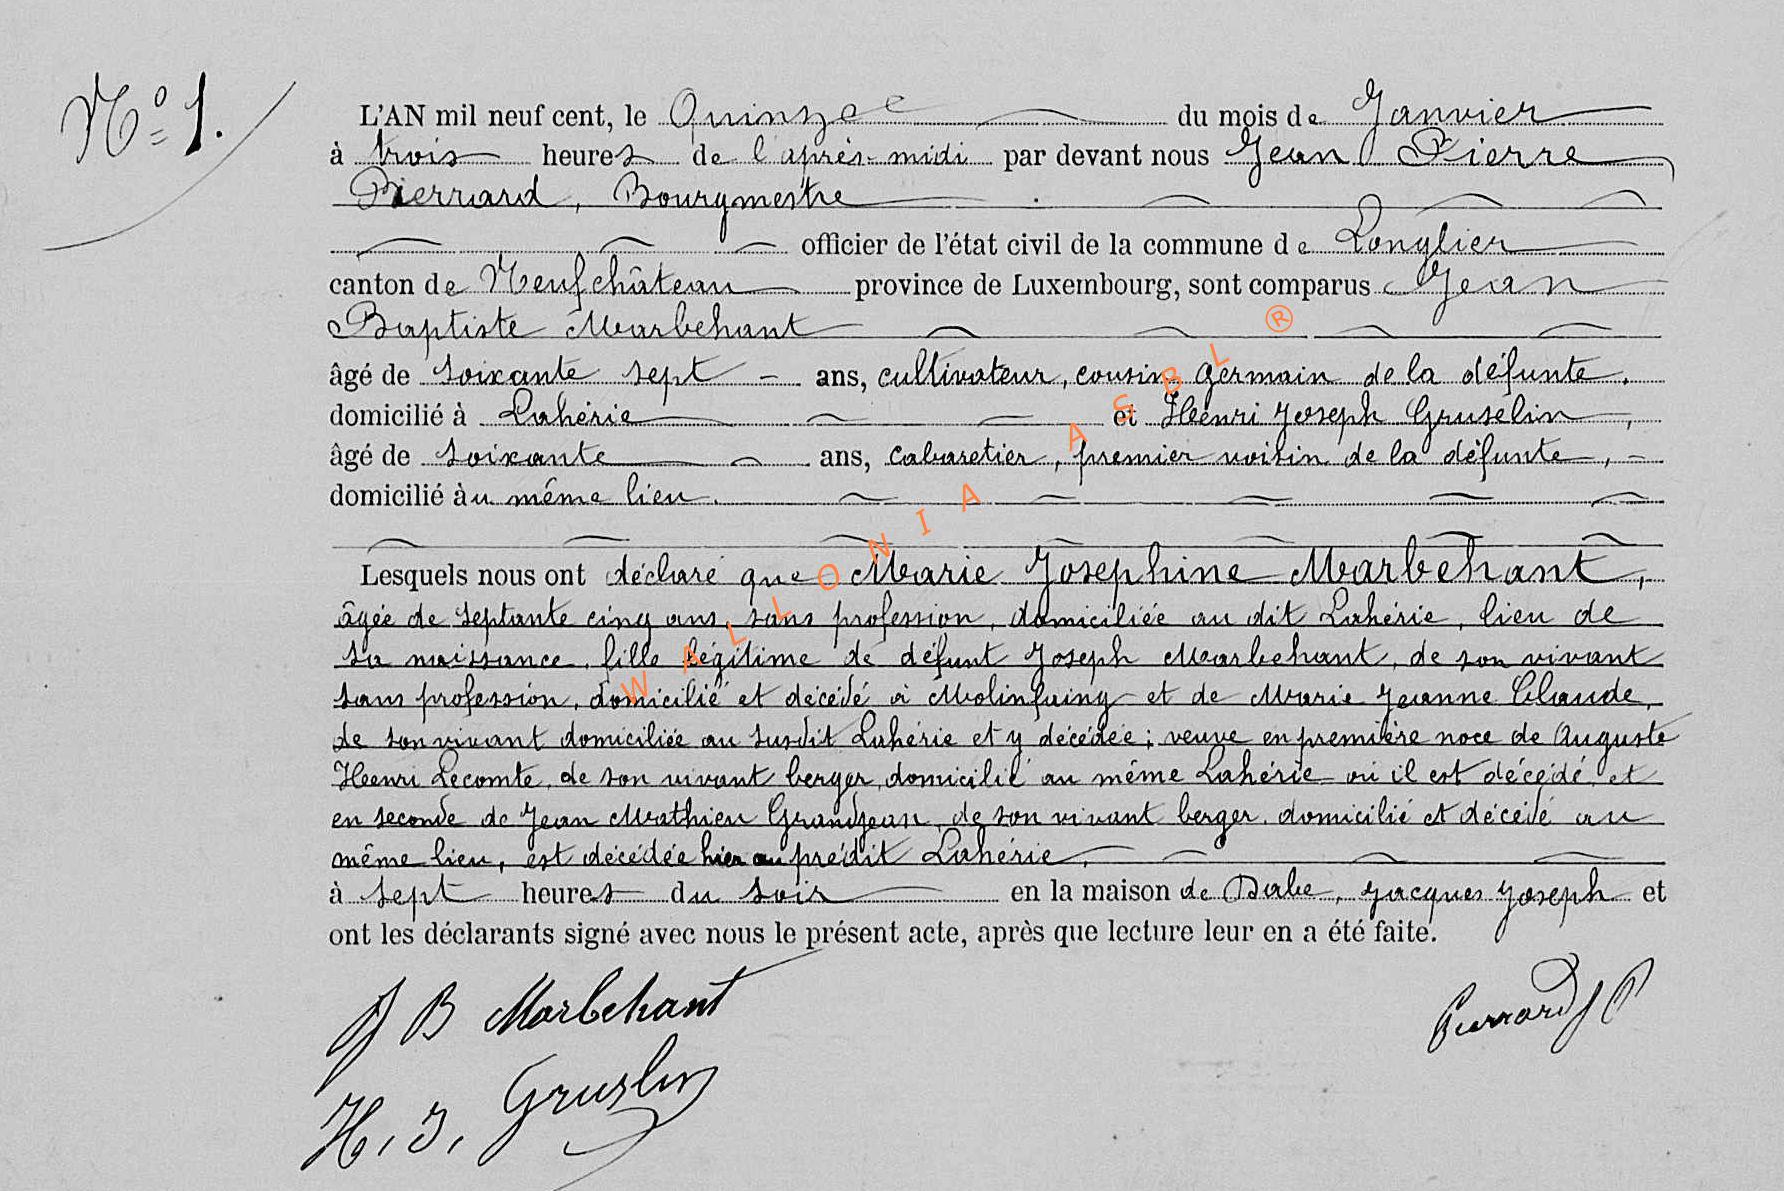 N° 1.
L'AN mil neuf cent, le Quinze du mois de Janvier
à trois heures de l'après-midi par devant nous Jean Pierre
Pierrard, Bourgmestre
officier de l'état civil de la commune de Longlier
canton de Neufchâteau province de Luxembourg, sont comparus Jean
Baptiste Marbehant
âgé de soixante sept ans, cultivateur, cousin germain de la défunte,
domicilié à Lahérie et Henri Joseph Gruselin,
âgé de soixante ans, cabaretier, premier voisin de la défunte,
domicilié au même lieu.
Lesquels nous ont déclaré que Marie Josephine Marbehant,
âgée de septante cinq ans, sans profession, domiciliée au dit Lahérie, lieu de
sa naissance, fille légitime de défunt Joseph Marbehant, de son vivant
sans profession, domicilié et décédé à Molinfaing et de Marie Jeanne Claude,
de son vivant domiciliée au susdit Lahérie et y décédée; veuve en première noce de Auguste
Henri Lecomte, de son vivant berger, domicilié au même Lahérie où il est décédé et
en seconde de Jean Mathieu Grandjean, de son vivant berger, domicilié et décédé au
même lieu, est décédée hier au prédit Lahérie,
à sept heures du soir en la maison de Dabe, Jacques Joseph et
ont les déclarants signé avec nous le présent acte, après que lecture leur en a été faite.
J B Marbehant
Pierrard J P
H. J. Gruslin
WALLONIA ASBL ®